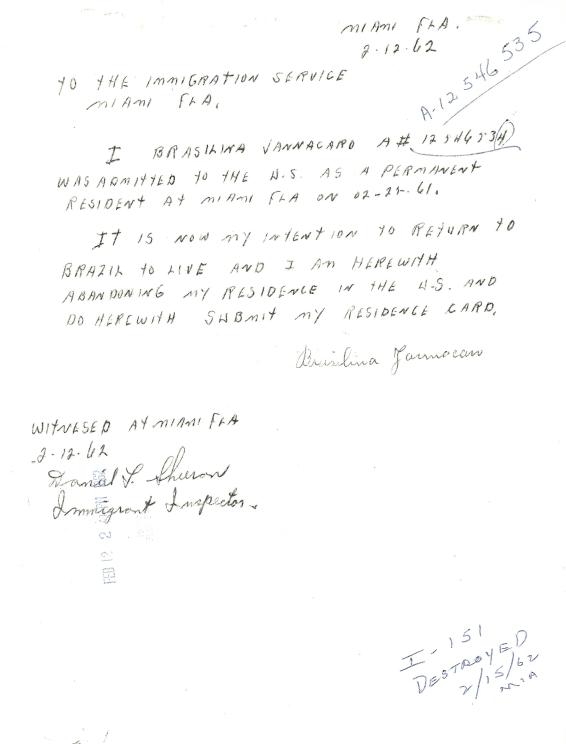 MIAMI FLA.
2-12-62
A-12 546 535
TO THE IMMIGRATION SERVICE
MIAMI FLA.
I BRASILINA VANNACARO A# 12 546 534
WAS ADMITTED TO THE U.S. AS A PERMANENT
RESIDENT AT MIAMI FLA ON 02-25-61.
IT IS NOW MY INTENTION TO RETURN TO
BRAZIL TO LIVE AND I AM HEREWITH
ABANDONING MY RESIDENCE IN THE U.S. AND
DO HEREWITH SUBMIT MY RESIDENCE CARD.
Brasilina
WITNESED AT MIAMI FLA
2-12-62
Daniel
Immigrant Inspector.
FEB 12 2
I-151
DESTROYED
2/15/62
MIA